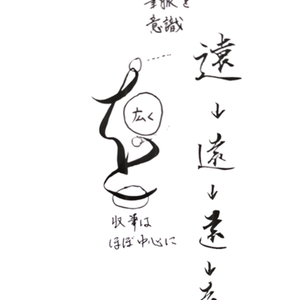 筆脈を
意識
広く
収筆は
ほぼ中心に
遠
↓
遠
↓
遠
↓